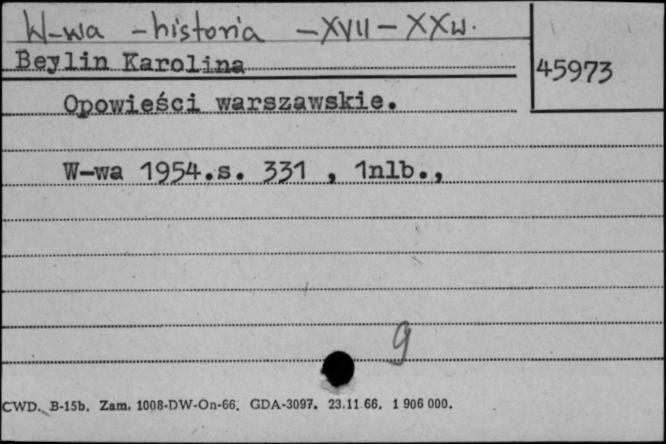 W-wa - historia - XVII - XXw.
Beylin Karolina
45973
Opowieści warszawskie.
W-wa 1954.s. 331 , 1nlb.,
9
CWD. B-15b. Zam. 1008-DW-On-66. GDA-3097. 23.11.66. 1 906 000.